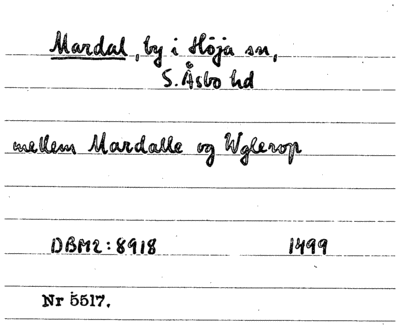 Mardal, by i Höja sn,
S. Åsbo hd
mellem Mardalle og Wglerop
DBM2:8918 1499
Nr 5517.